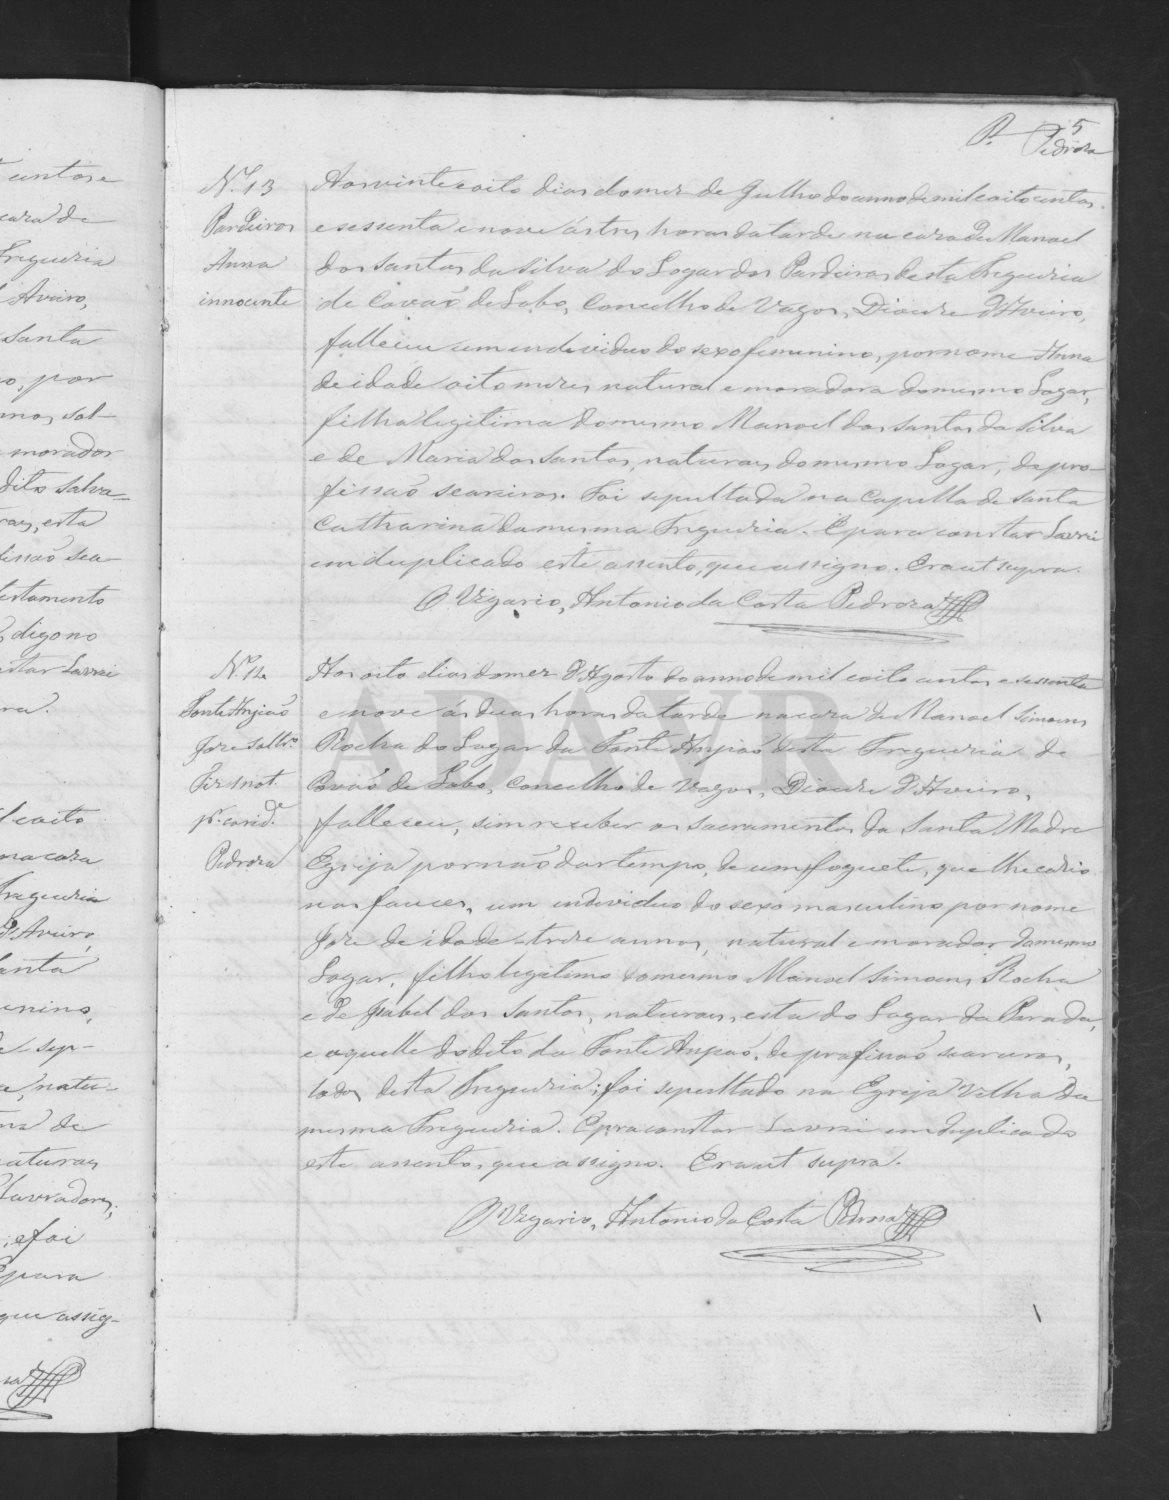 5
P. Pedroza
N.º 13
Pardeiros
Anna
innocente
Aos vinte e oito dias do mez de Julho do anno de mil e oito centos
e sessenta e nove ás tres horas da tarde na caza de Manoel
dos Santos da Silva do Logar dos Pardeiros desta Freguezia
de Covaõ de Lobo, Concelho de Vagos, Dioceze d'Aveiro,
falleceu um individuo do sexo feminino, por nome Anna
de idade oito mezes natural e moradora do mesmo Logar,
filha legitima do mesmo Manoel dos Santos da Silva
e de Maria dos Santos, naturaes do mesmo Logar, de pro-
fissaõ seareiros. Foi sepultada na Capella de Santa
Catharina da mesma Freguezia. E para constar Lavrei
em duplicado este assento, que assigno. Era ut supra.
O Vigario, Antonio da Costa Pedroza
N.º 14
Fonte Anjiaõ
Joze solt.ro
Pedroza
Aos oito dias do mez d'Agosto do anno de mil e oito centos e sessenta
e nove ás duas horas da tarde na caza de Manoel Simoens
Rocha do Logar da Fonte Anjiaõ desta Freguezia de
Covaõ de Lobo, Concelho de Vagos, Dioceze d'Aveiro,
falleceu, sim receber os sacramentos da Santa Madre
Egreja por naõ dar tempo, de um foguete, que lhe cahio
nas fauces, um individuo do sexo masculino por nome
Joze de idade treze annos, natural e morador do mesmo
Logar, filho legitimo do mesmo Manoel Simoens Rocha
e de Izabel dos Santos, naturaes, esta do Logar da Parada,
e aquelle do dito da Fonte Anjiaõ, de profissaõ seareiros,
todos desta Freguezia; foi sepultado na Egreja Velha da
mesma Freguezia. E pra constar Lavrei em duplicado
este assento, que assigno. Era ut supra.
O Vigario, Antonio da Costa Pedroza
ADAVR